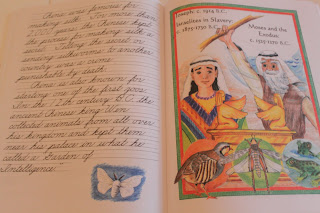 China was famous for
making silk. For more than
2,000 years, the Chinese kept
the process for making silk a
secret. Telling the secret or
sending silkworms to another
country was a crime
punishable by death.
China is also known for
starting one of the first zoos.
In the 12th century B.C., the
ancient Chinese king Wen
collected animals from all over
his kingdom and kept them
near his palace in what he
called a Garden of
Intelligence.
Joseph: c. 1914 B.C.
Israelites in Slavery:
c. 1875-1730 B.C.
Moses and the
Exodus:
B.C.